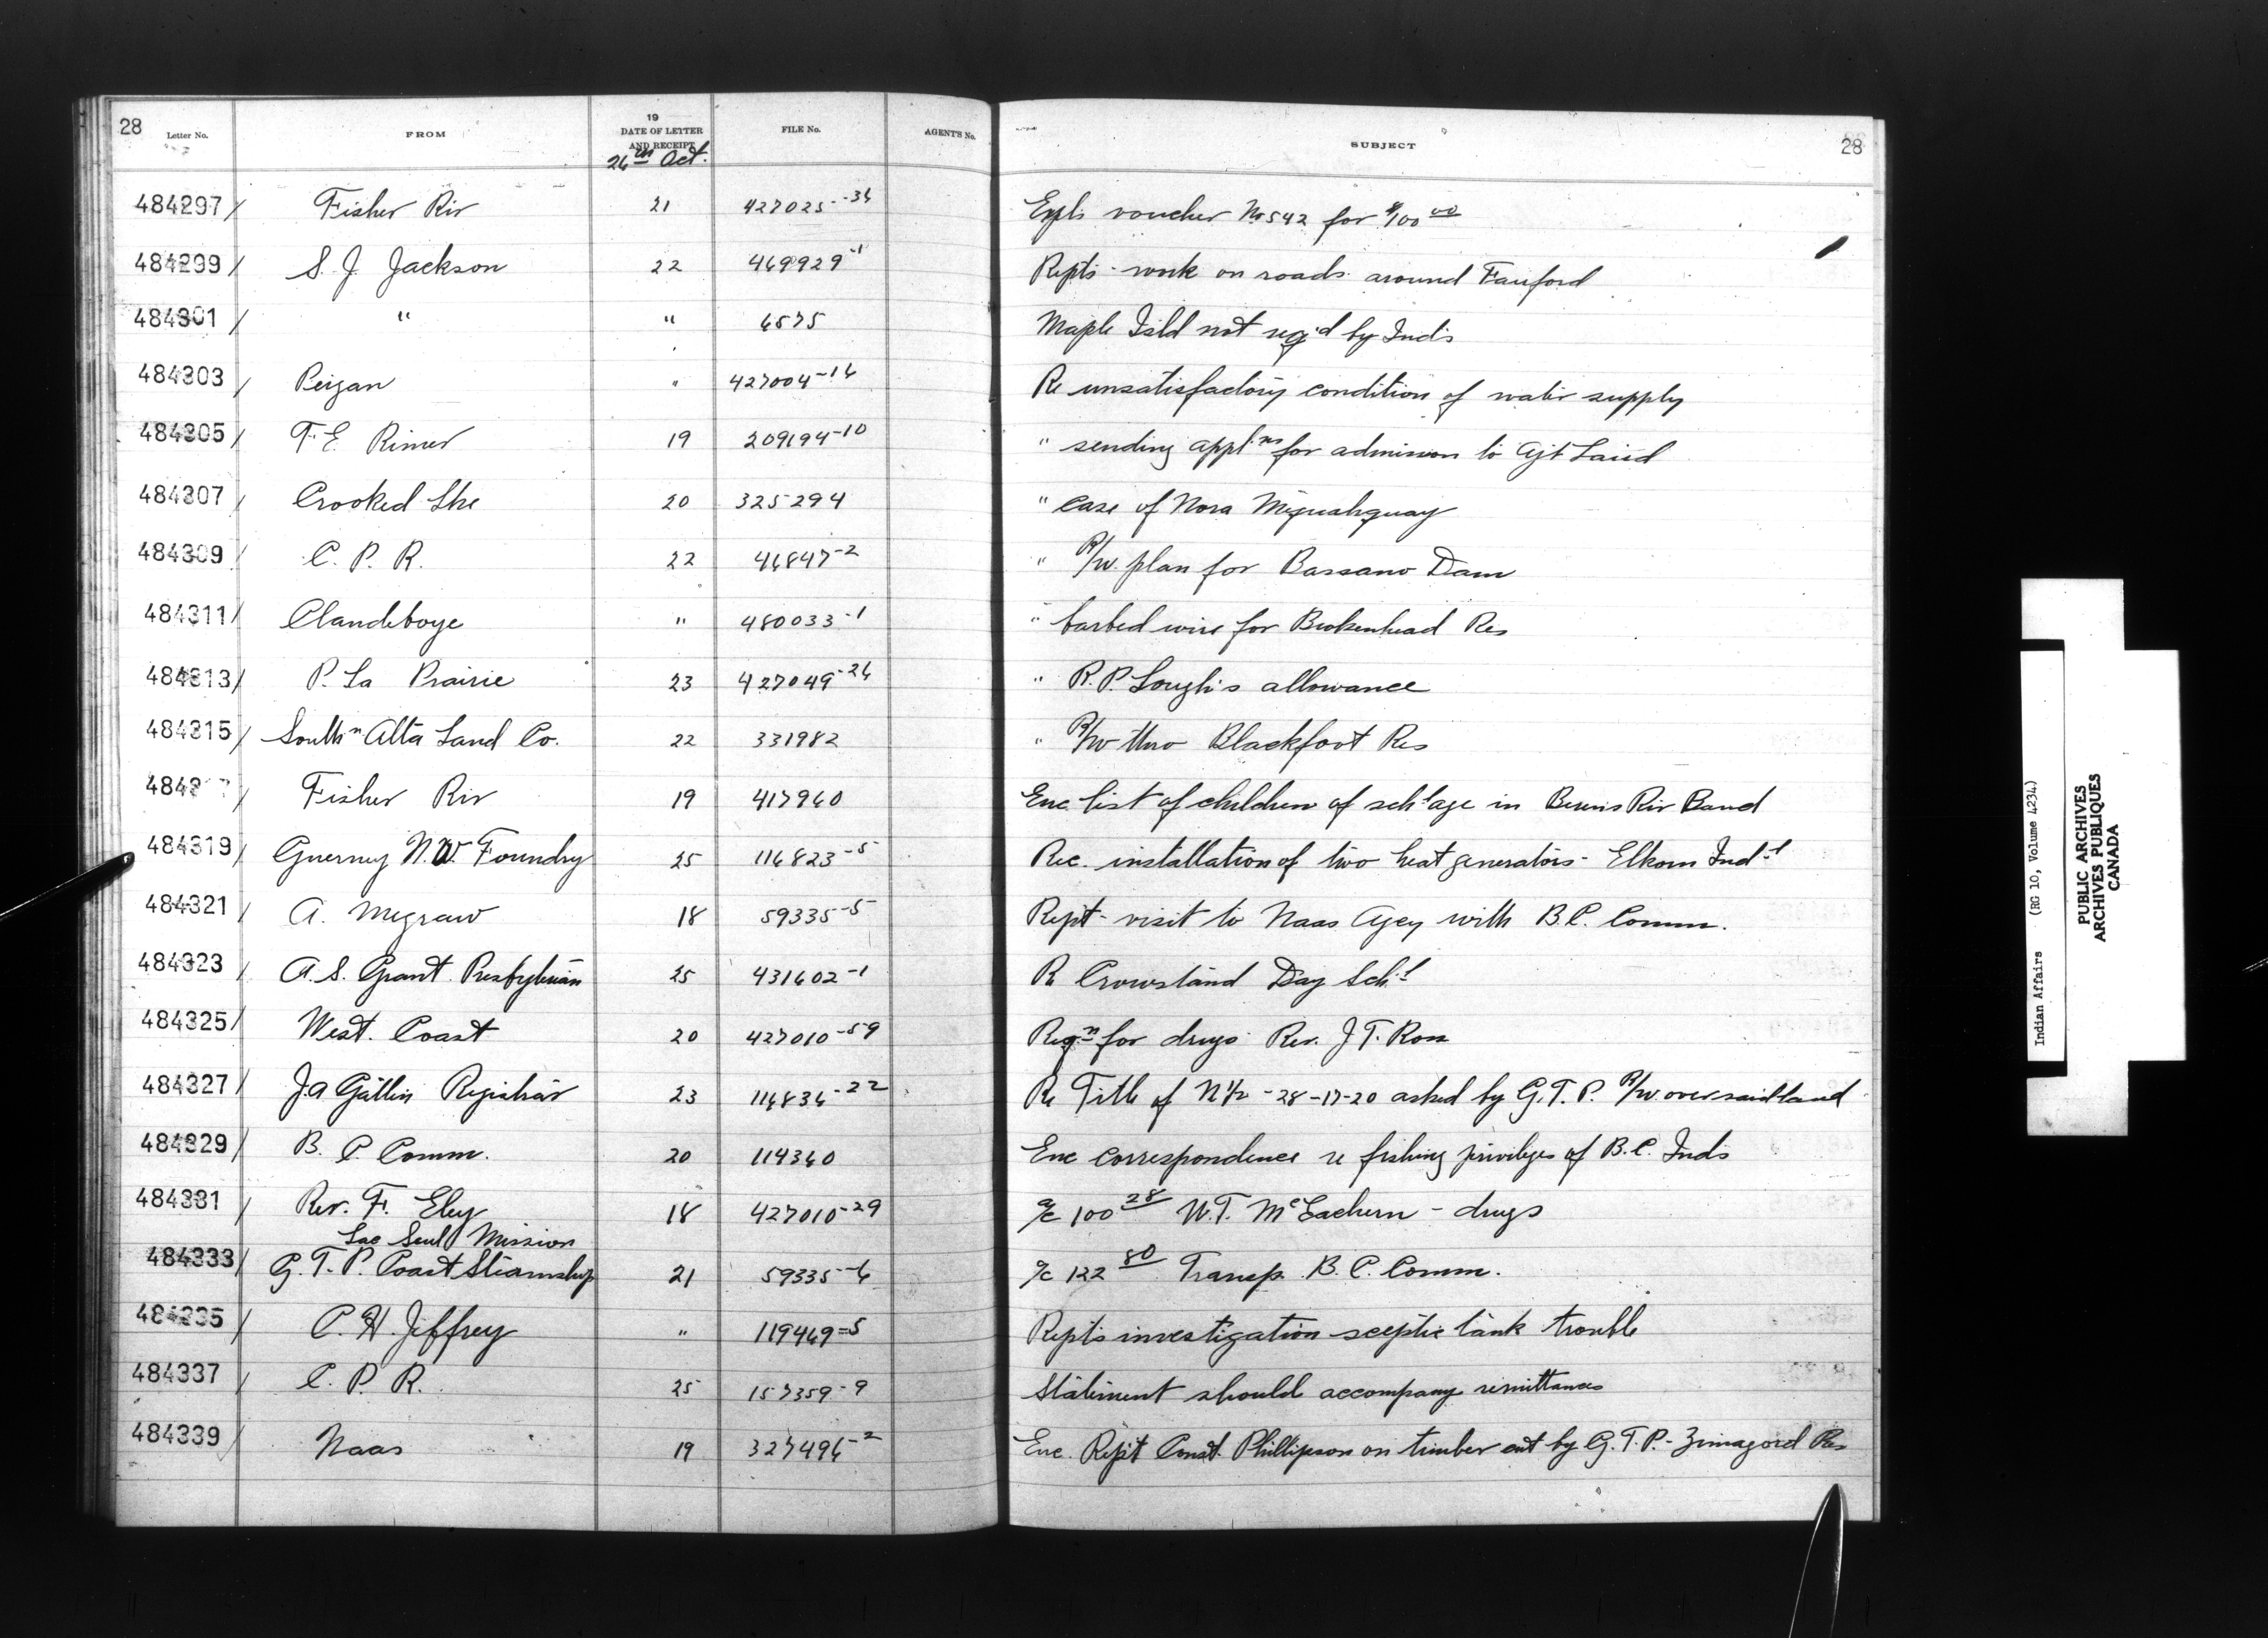 28 Letter No. FROM 19 DATE OF LETTER AND RECEIPT FILE No. AGENT'S No. SUBJECT 28
26th Oct.
484297 / Fisher Riv 21 427025-36 Expls voucher No 542 for $100 00
484299 / S. J. Jackson 22 469929-1 Repts - work on roads around Fairford
484301 / " " 6575 Maple Isld not req'd by Inds
484303 / Peigan " 427004-16 Re unsatisfactory condition of water supply
484305 / F. E. Rimer 19 209194-10 " sending appl'ns for admission to Agt Laird
484307 / Crooked Lke 20 325294 " case of Nora
484309 / C. P. R. 22 46847-2 " R/W. plan for Bassano Dam
484311 / Clandeboye " 480033-1 " barbed wire for Brokenhead Res
484313 / P. La Prairie 23 427049-26 " R. P. allowance
484315 / South'n Alta Land Co. 22 331982 " R/W thro Blackfoot Res
484317 / Fisher Riv 19 417960 Enc list of children of sch'l age in Berens Riv Band
484319 / Guerney N. W. Foundry 25 116823-5 Rec. installation of two heat generators - Elkorn Ind'l
484321 / A. Megraw 18 59335-5 Rept - visit to Naas Agey with B. C. Comm.
484323 / A. S. Grant Presbyterian 25 431602-1 R Crowstand Day Sch'l
484325 / West. Coast 20 427010-59 Reqn for drugs Rev. J. T. Ross
484327 / J. A. Registrar 23 116836-22 Re Title of N 1/2 - 28-17-20 asked by G. T. P. R/W. over said land
484329 / B. C Comm. 20 114360 Enc correspondence re fishing privileges of B. C. Inds
484331 / Rev. F. Eley 18 427010-29 a/c 100 28 W. T. McEachern - drugs
Lac Seul Mission
484333 / G. T. P. Coast Steamship 21 59335-6 a/c 122 80 Transp. B. C. Comm.
484335 / C. H. Jeffrey " 119469-5 Repts investigation sceptic tank trouble
484337 / C. P. R. 25 157359-9 Statement should accompany remittances
484339 / Naas 19 327496-2 Enc. Rept Const. Phillipson on timber cut by G. T. P. - Res
Indian Affairs (RG 10, Volume 4234)
PUBLIC ARCHIVES
ARCHIVES PUBLIQUES
CANADA